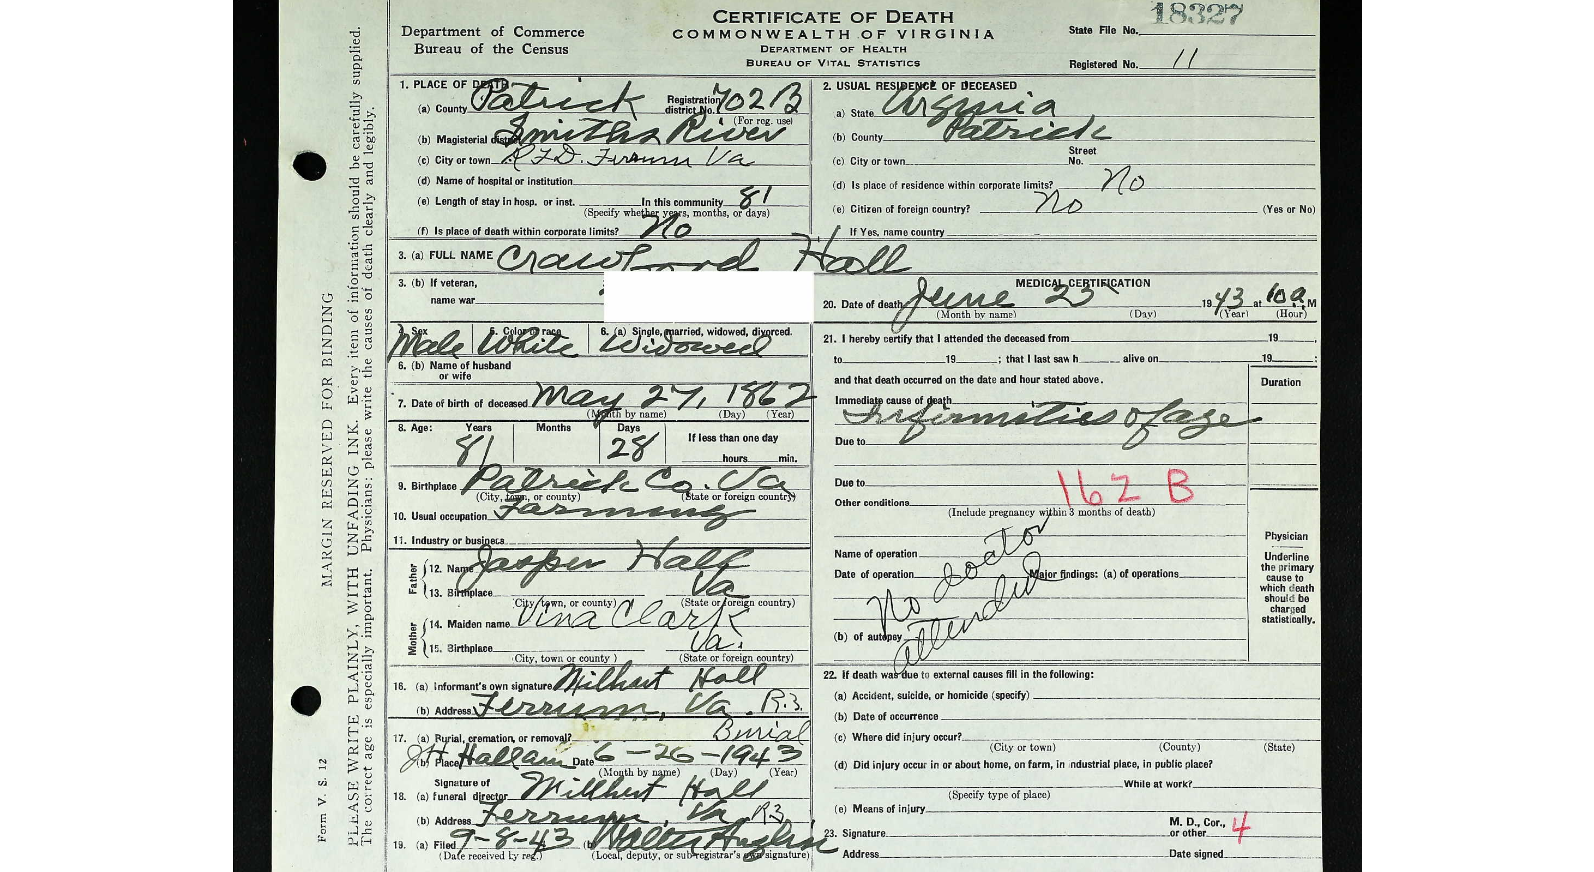 CERTIFICATE OF DEATH
COMMONWEALTH OF VIRGINIA
DEPARTMENT OF HEALTH
BUREAU OF VITAL STATISTICS
Department of Commerce
Bureau of the Census
State File No. 18327
Registered No. 11
MARGIN RESERVED FOR BINDING
PLEASE WRITE PLAINLY, WITH UNFADING INK. Every item of information should be carefully supplied.
The correct age is especially important. Physicians: please write the causes of death clearly and legibly.
Form V. S. 12
1. PLACE OF DEATH
(a) County Patrick Registration district No. 702 B
(For reg. use)
(b) Magisterial district Smiths River
(c) City or town R.F.D. Ferrum Va
(d) Name of hospital or institution
(e) Length of stay in hosp. or inst. In this community 81
(Specify whether years, months, or days)
(f) Is place of death within corporate limits? No
2. USUAL RESIDENCE OF DECEASED
a) State Virginia
(b) County Patrick
(c) City or town Street No.
(d) Is place of residence within corporate limits? No
(e) Citizen of foreign country? No (Yes or No)
If Yes, name country
3. (a) FULL NAME Crawford Hall
3. (b) If veteran,
name war
4. Sex 5. Color or race 6. (a) Single, married, widowed, divorced.
Male White Widowed
6. (b) Name of husband
or wife
7. Date of birth of deceased May 27, 1862
(Month by name) (Day) (Year)
8. Age: Years Months Days If less than one day
81 28 hours min.
9. Birthplace Patrick Co. Va
(City, town, or county) (State or foreign country)
10. Usual occupation Farming
11. Industry or business
Father
12. Name Jasper Hall
13. Birthplace Va
(City, town, or county) (State or foreign country)
Mother
14. Maiden name Vina Clark
15. Birthplace Va.
(City, town or county) (State or foreign country)
16. (a) Informant's own signature Milhert Hall
(b) Address Ferrum, Va. R.3.
17. (a) Burial, cremation, or removal? Burial
(b) Place Date 6-26-1943
(Month by name) (Day) (Year)
Signature of
18. (a) funeral director Milhert Hall
(b) Address Ferrum, Va. R3
19. (a) Filed 9-8-43 (b) Walter Anglin
(Date received by reg.) (Local, deputy, or sub-registrar's own signature)
MEDICAL CERTIFICATION
20. Date of death June 25 1943 at 10 a M
(Month by name) (Day) (Year) (Hour)
21. I hereby certify that I attended the deceased from 19 ,
to 19 ; that I last saw h alive on 19 ;
and that death occurred on the date and hour stated above.
Duration
Immediate cause of death
Infirmities of age
Due to
Due to
162 B
Other conditions
(Include pregnancy within 3 months of death)
Name of operation
Date of operation Major findings: (a) of operations
(b) of autopsy
No doctor
attended
Physician
Underline
the primary
cause to
which death
should be
charged
statistically.
22. If death was due to external causes fill in the following:
(a) Accident, suicide, or homicide (specify)
(b) Date of occurrence
(c) Where did injury occur?
(City or town) (County) (State)
(d) Did injury occur in or about home, on farm, in industrial place, in public place?
While at work?
(Specify type of place)
(e) Means of injury
23. Signature M. D., Cor., or other 4
Address Date signed